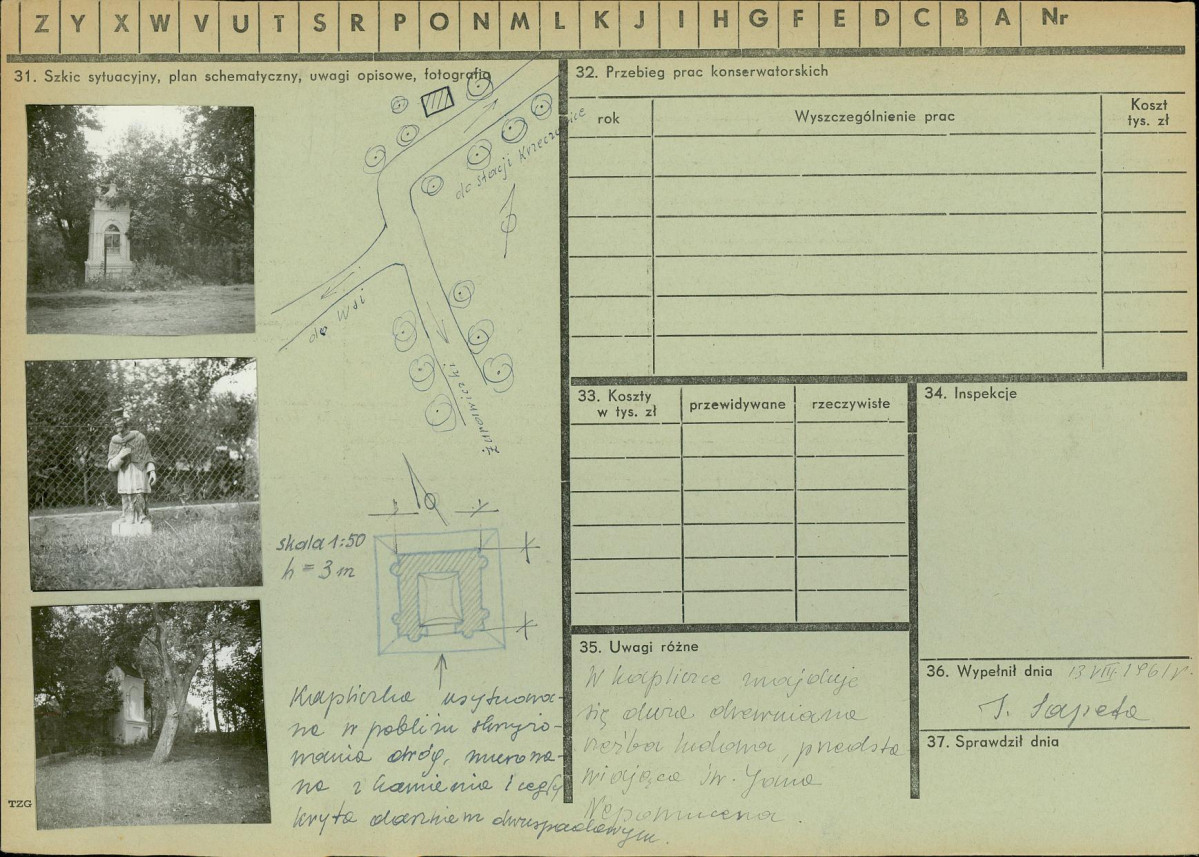 Z Y X W V U T S R P O N M L K J I H G F E D C B A Nr
31. Szkic sytuacyjny, plan schematyczny, uwagi opisowe, fotografia
do stacji Krzeczowice
do wsi
Żurawiczki
skala 1:50
h = 3 m
Kapliczka usytuowa-
na w pobliżu skrzyżo-
wania dróg, murowa-
na z kamienia i cegły
kryta daszkiem dwuspadowym.
TZG
32. Przebieg prac konserwatorskich
rok
Wyszczególnienie prac
Koszt
tys. zł
33. Koszty
w tys. zł
przewidywane
rzeczywiste
34. Inspekcje
35. Uwagi różne
W kapliczce znajduje
się duża drewniana
rzeźba ludowa, przedsta
wiająca św. Jana
Nepomucena.
36. Wypełnił dnia 13 VIII. 1961 r.
J. Sapeta
37. Sprawdził dnia